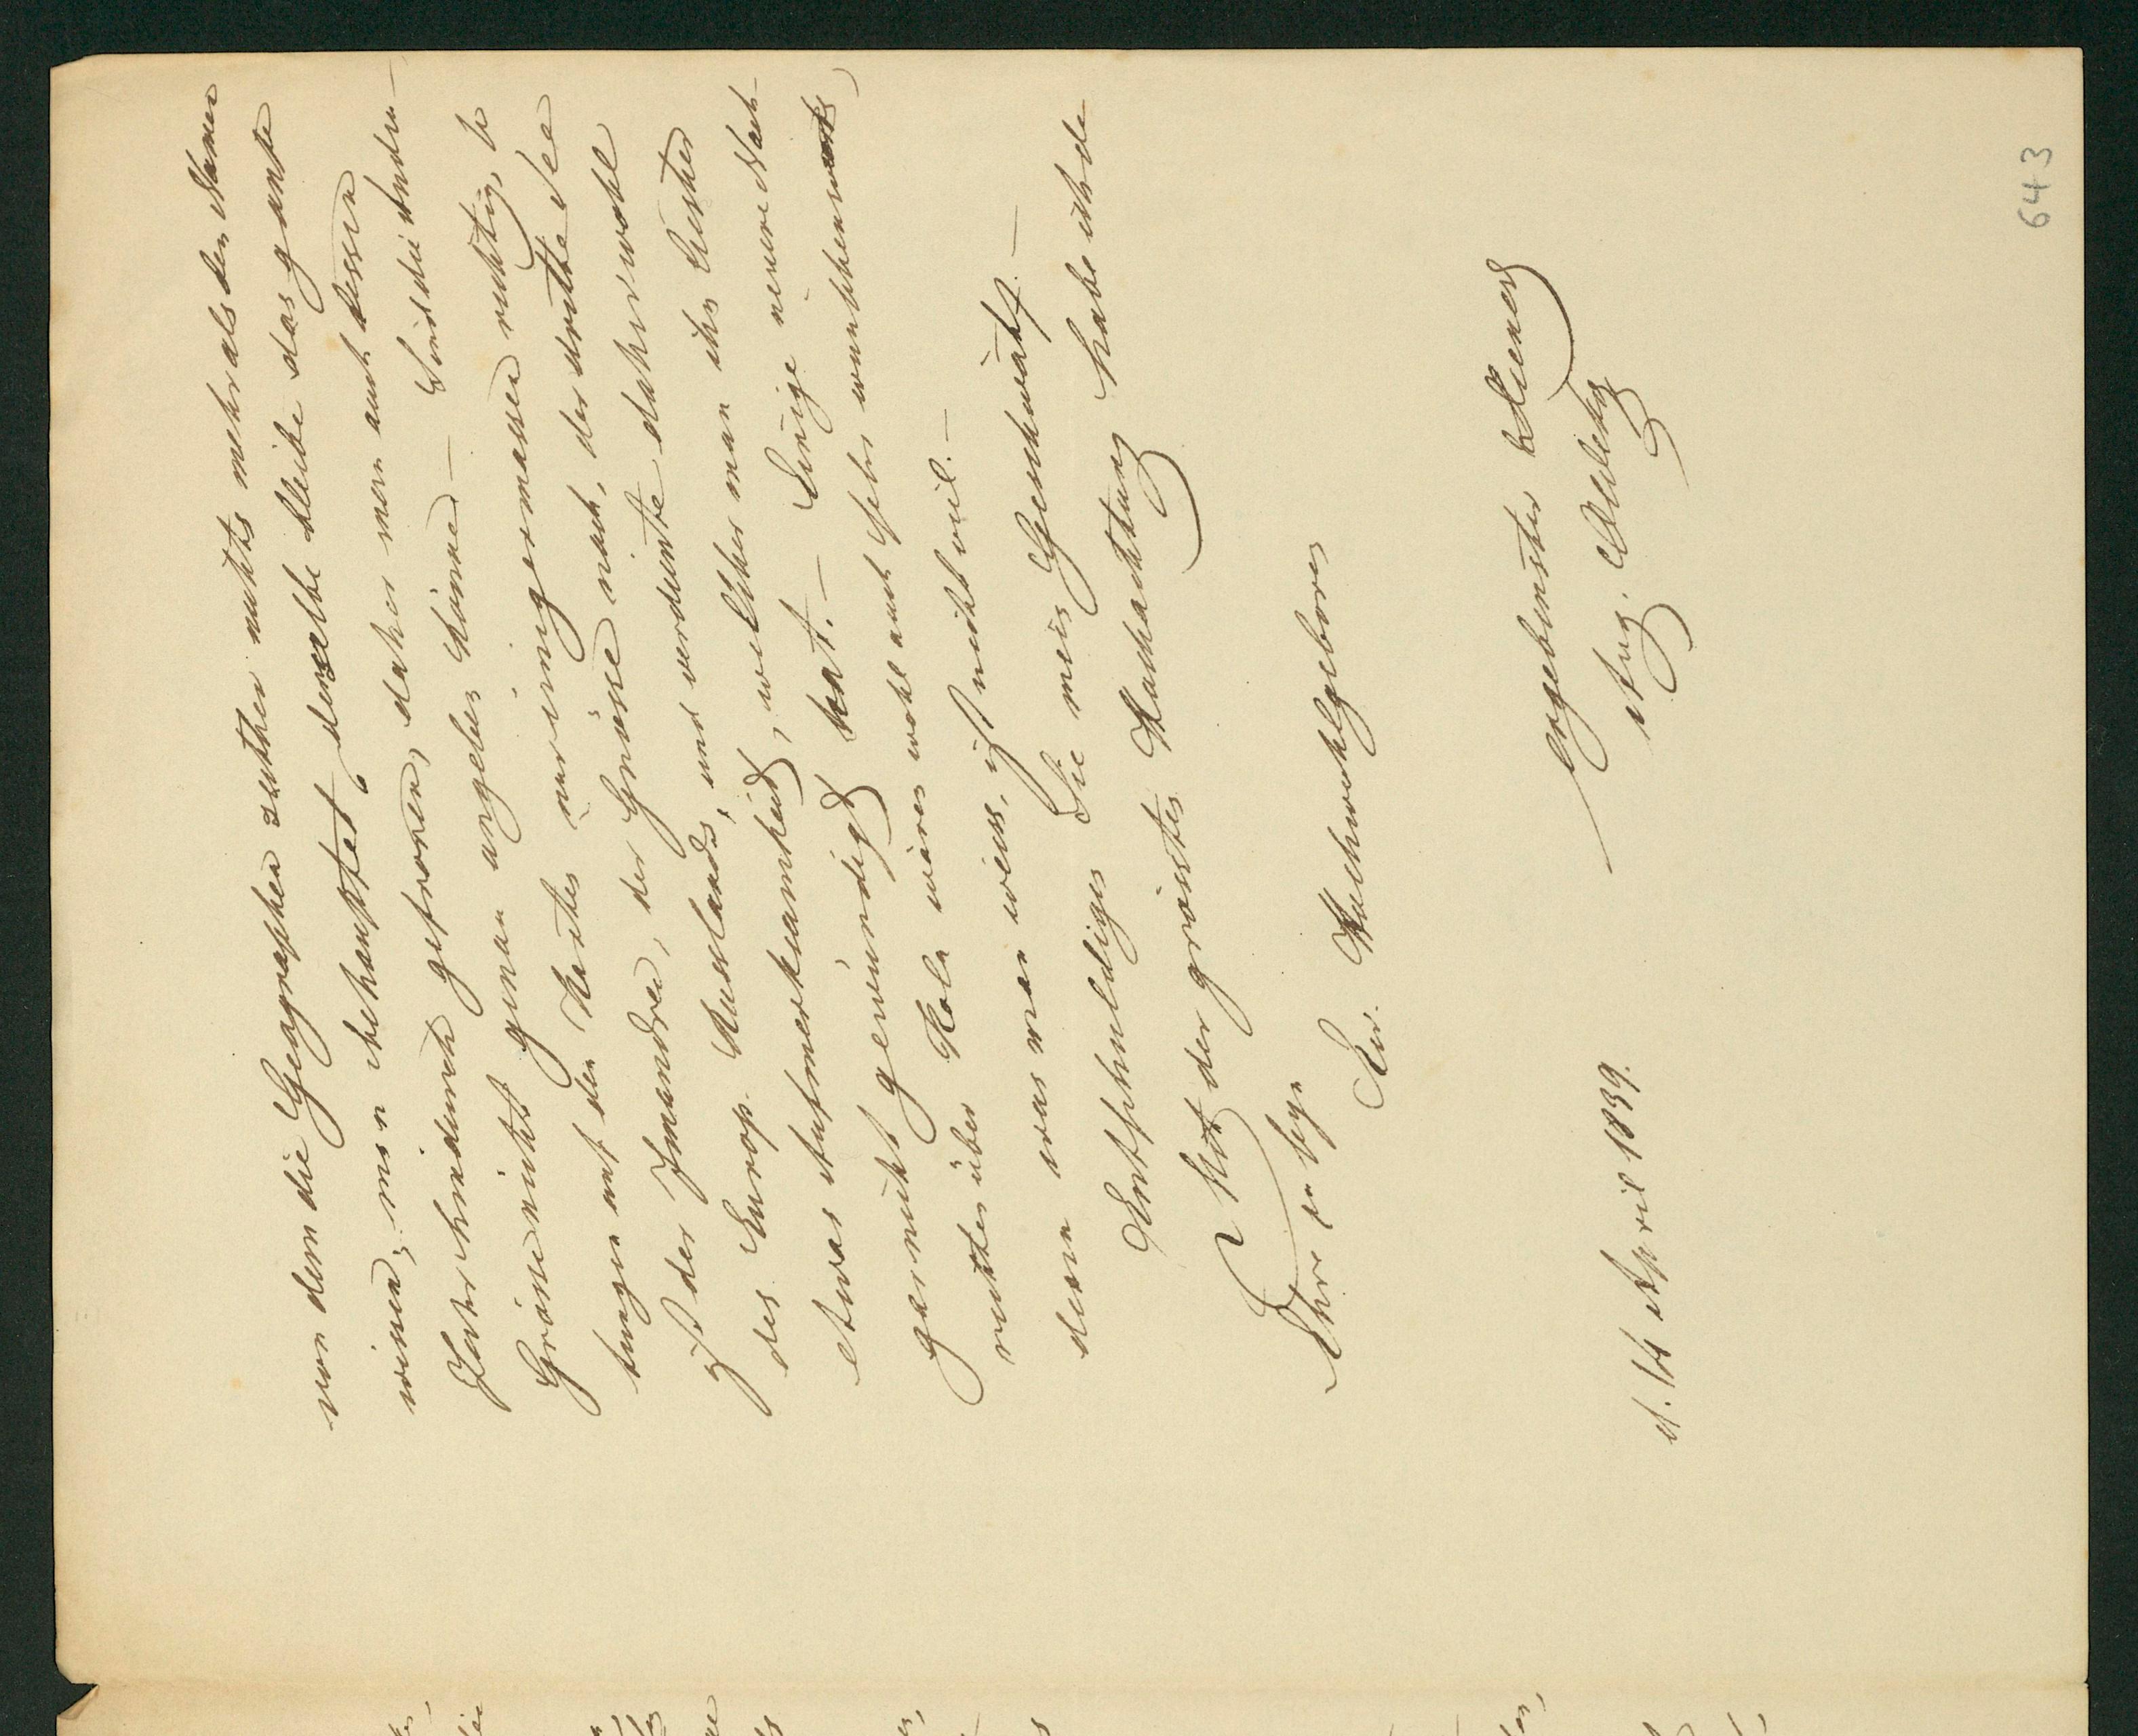 von dem die Geographen zeither nichts mehr als den Namen
wissen; man behauptet derselbe bleibe das ganze
Jahr hindurch gefroren, daher man auch dessen
Grösse nicht genau angeben könne. — Sind die Andeu-
tungen auf den Karten nur einigermassen richtig, so
ist der Imandra, der Grösse nach, der dritte See
des Europ. Russlands, und verdiente daher wohl
etwas Aufmerksamkeit, welcher man ihn bisher
gar nicht gewürdigt hat. — Einige neuere Nach-
richten über Kola wären wohl auch sehr wünschenswerth,
denn was man weiss, ist nicht viel. —
Entschuldigen Sie mein Geschwätz. —
Mit der grössten Hochachtung habe ich die
Ehre zu seyn
Ew. Hochwohlgeboren
ergebenster Diener
Aug.
d. 14 April 1839.
643